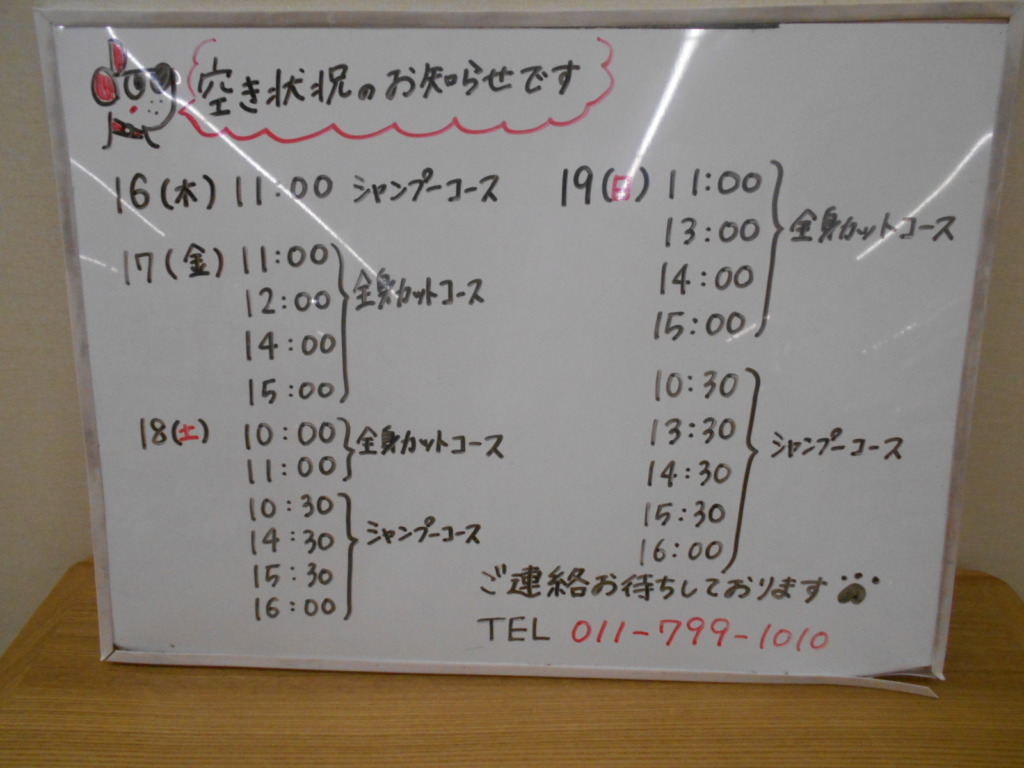 空き状況のお知らせです
16(木) 11:00 シャンプーコース
17(金) 11:00
12:00
14:00
15:00
全身カットコース
18(土) 10:00
11:00
全身カットコース
10:30
14:30
15:30
16:00
シャンプーコース
19(日) 11:00
13:00
14:00
15:00
全身カットコース
10:30
13:30
14:30
15:30
16:00
シャンプーコース
ご連絡お待ちしております
TEL 011-799-1010